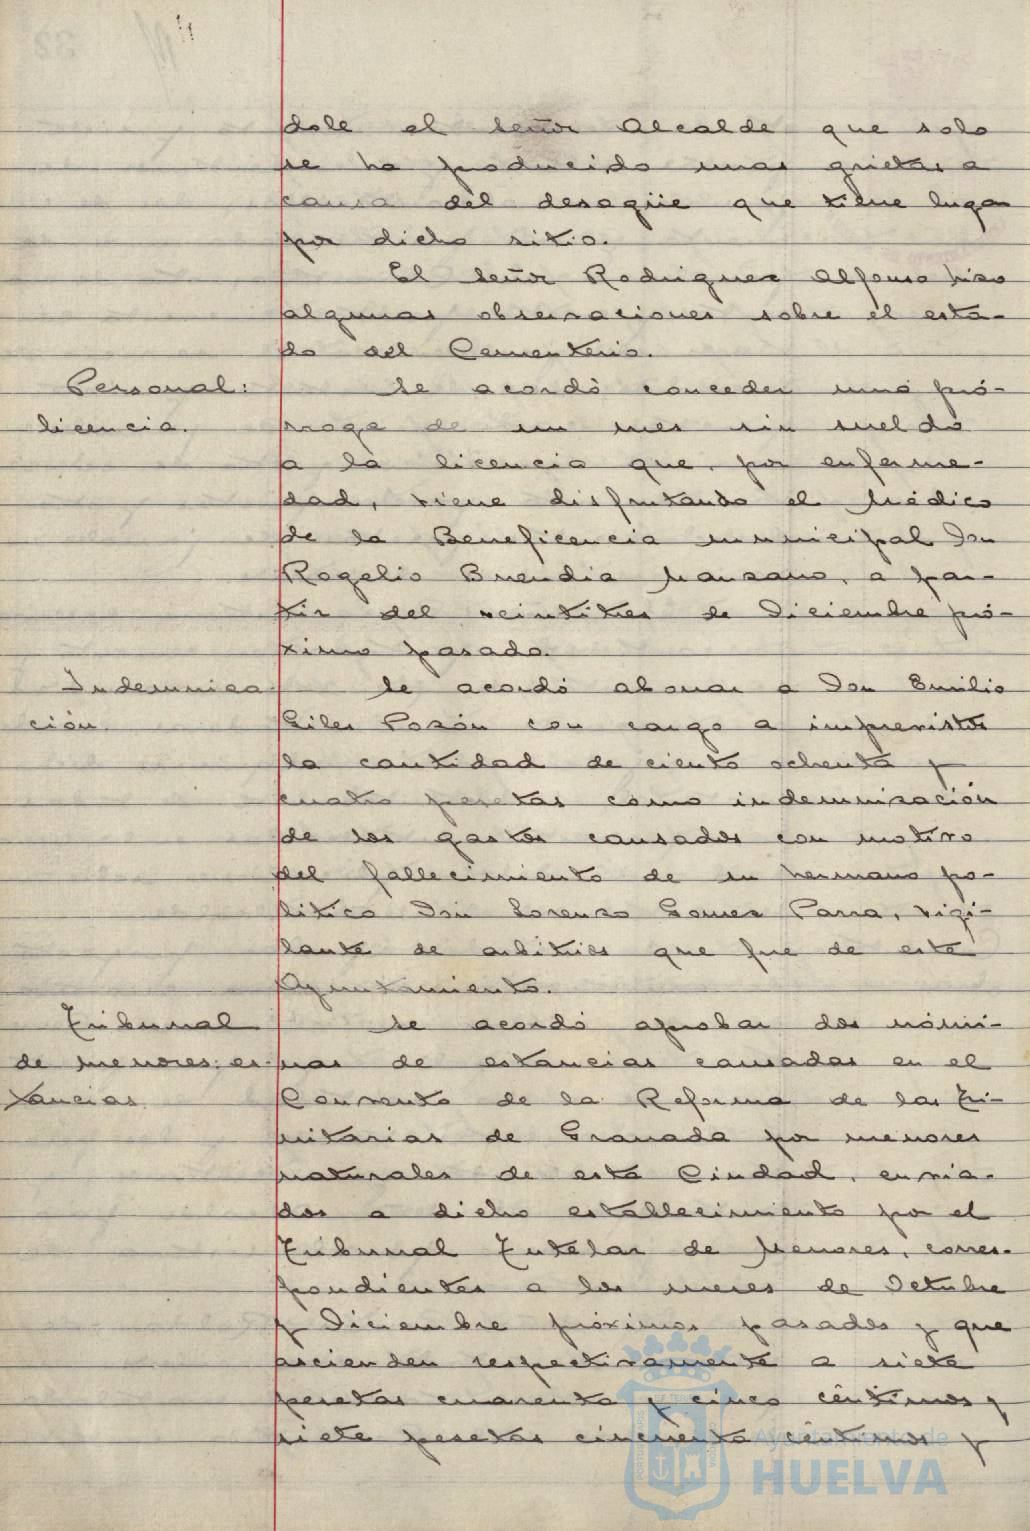 dole el señor Alcalde que solo
se ha producido unas grietas a
causa del desagüe que tiene lugar
por dicho sitio.
El señor Rodriguez Alfonso hizo
algunas observaciones sobre el esta-
do del Cementerio.
Personal: Se acordó conceder una pró-
licencia. rroga de un mes sin sueldo
a la licencia que, por enferme-
dad, viene disfrutando el Médico
de la Beneficencia municipal Don
Rogelio Buendia Manzano, a par-
tir del veintitres de Diciembre pró-
ximo pasado.
Indemniza Se acordó abonar a Don Emilio
ción. Siles Pozón con cargo a imprevistos
la cantidad de ciento ochenta y
cuatro pesetas como indemnización
de los gastos causados con motivo
del fallecimiento de su hermano po-
lítico Don Lorenzo Gomez Parra, vigi-
lante de arbitrios que fue de este
Ayuntamiento.
Tribunal Se acordó aprobar dos nómi-
de menores: es- nas de estancias causadas en el
tancias Convento de la Reforma de las Tri-
nitarias de Granada por menores
naturales de esta Ciudad, envia-
dos a dicho establecimiento por el
Tribunal Tutelar de Menores, corres-
pondientes a los meses de Octubre
y Diciembre próximos pasados y que
ascienden respectivamente a siete
pesetas cuarenta y cinco céntimos y
siete pesetas cincuenta céntimos y
Ayuntamiento de
HUELVA